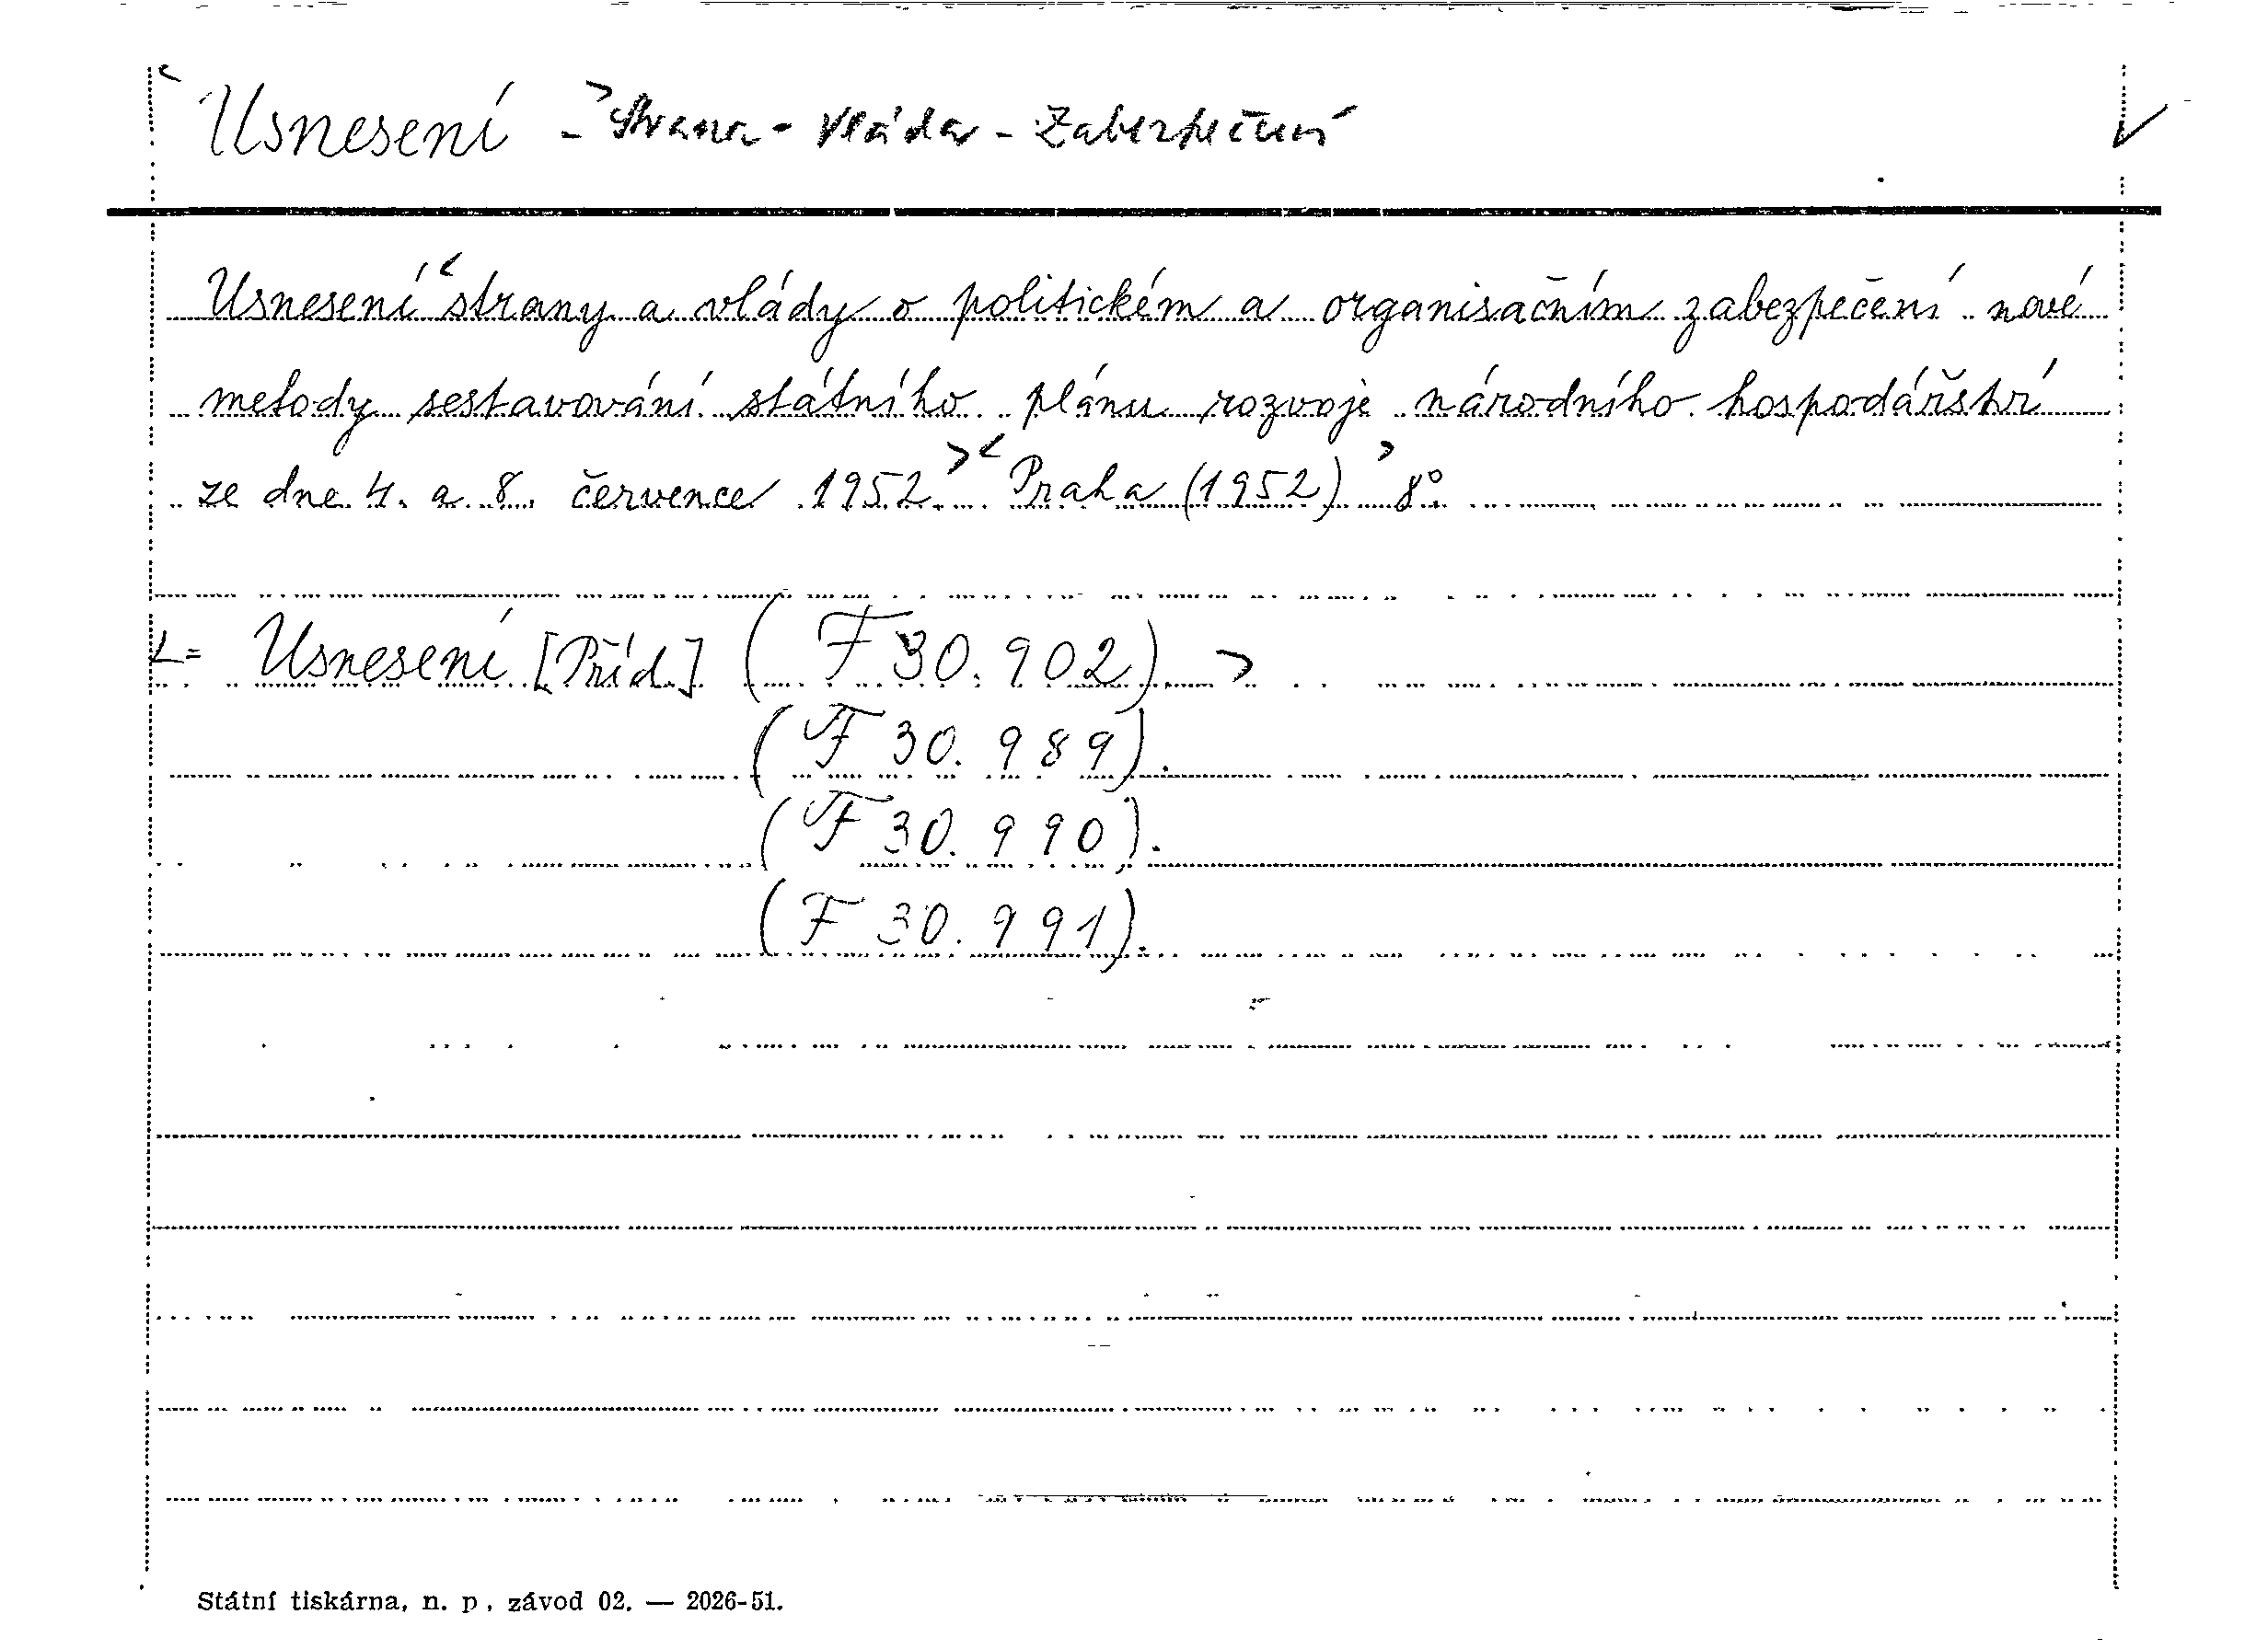 Usnesení - Strana - Vláda - Zabezpečení
Usnesení strany a vlády o politickém a organisačním zabezpečení nové
metody sestavování státního plánu rozvoje národního hospodářství
ze dne 4. a 8. července 1952. Praha (1952) 8°.
= Usnesení [Příd.] (F 30.902)
(F 30.989).
(F 30.990).
(F 30.991).
Státní tiskárna, n. p., závod 02. — 2026-51.